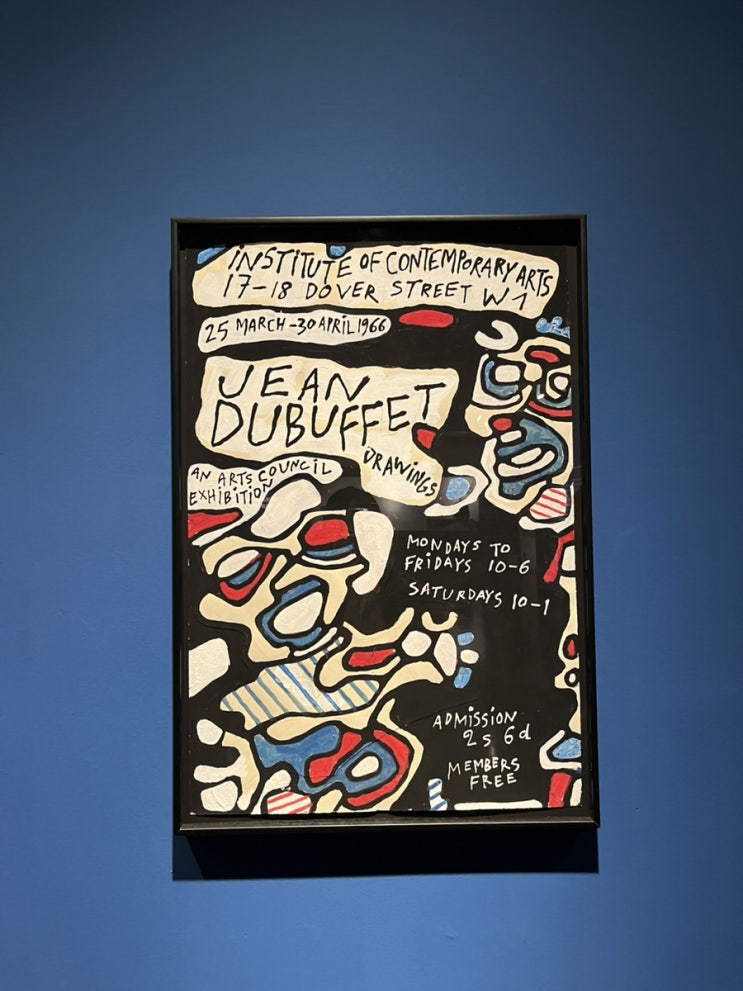 iNSTiTUTE OF CONTEMPORARY ARTS
17-18 DOVER STREET W1
25 MARCH-30 APRIL 1966
JEAN
DUBUFFET
DRAWINGS
AN ARTS COUNCIL
EXHIBITION
MONDAYS TO
FRiDAYS 10-6
SATURDAYS 10-1
ADMISSiON
2s 6d
MEMBERS
FREE